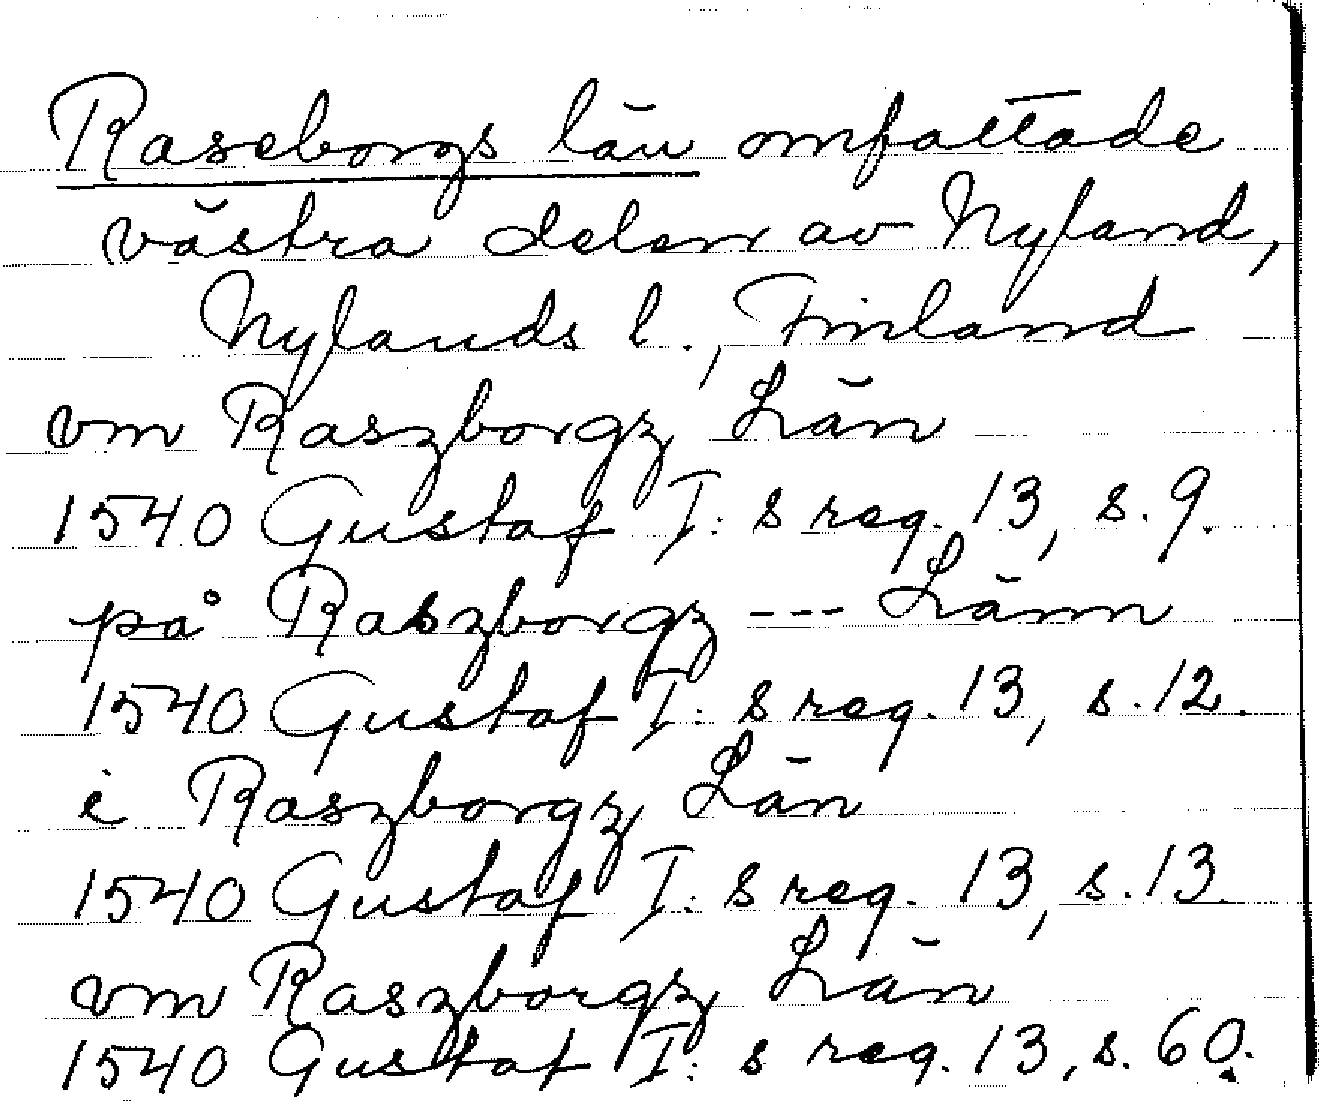 Raseborgs län omfattade
västra delen av Nyland,
Nylands l., Finland
vm Raszborgz Län
1540 Gustaf I:s reg. 13, s. 9.
på Raszborgz --- Länn
1540 Gustaf I:s reg. 13, s. 12.
i Raszborgz Län
1540 Gustaf I:s reg. 13, s. 13.
vm Raszborgz Län
1540 Gustaf I:s reg. 13, s. 60.